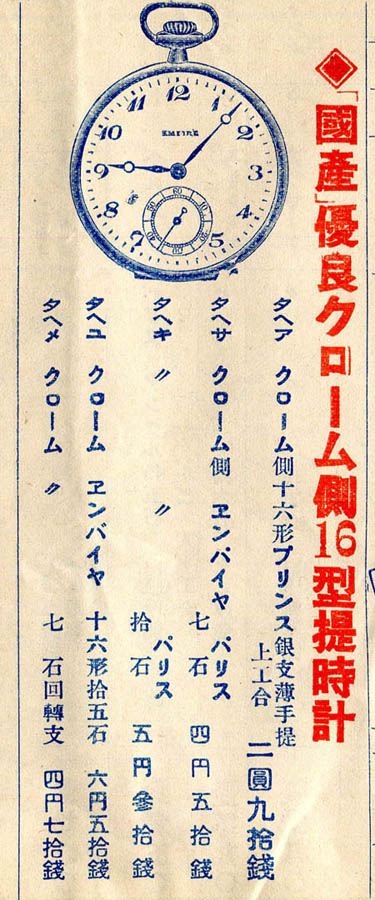 EMPIRE
12
1
2
3
4
5
7
8
9
10
11
60
10
20
30
40
50
◆「國產」優良クローム側16型提時計
タヘア クローム側十六形プリンス銀支薄手提
上工合 二圓九拾錢
タヘサ クローム側 ヱンパイヤ パリス
七石 四円五拾錢
タヘキ 〃 〃 パリス
拾石 五円參拾錢
タヘユ クローム ヱンバイヤ 十六形拾五石 六円五拾錢
タヘメ クローム 〃 七石回轉支 四円七拾錢